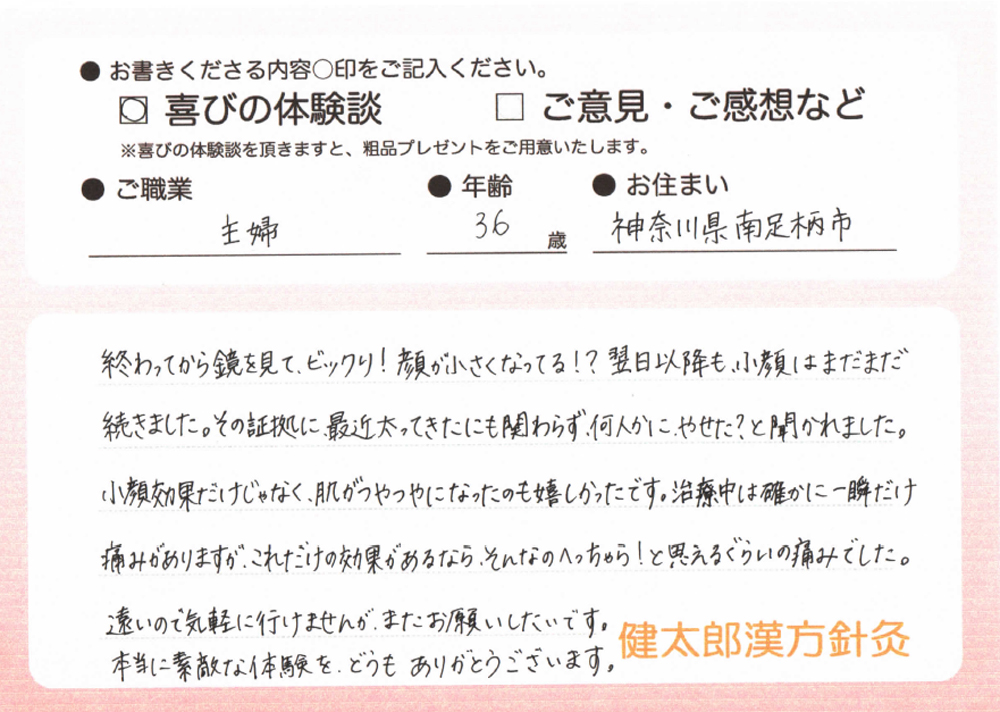 ● お書きくださる内容○印をご記入ください。
☐ 喜びの体験談 □ ご意見・ご感想など
※喜びの体験談を頂きますと、粗品プレゼントをご用意いたします。
● ご職業 ● 年齢 ● お住まい
主婦 36 歳 神奈川県南足柄市
終わってから鏡を見て、ビックリ！顔が小さくなってる！？翌日以降も、小顔はまだまだ
続きました。その証拠に、最近太ってきたにも関わらず、何人かに、やせた？と聞かれました。
小顔効果だけじゃなく、肌がつやつやになったのも嬉しかったです。治療中は確かに一瞬だけ
痛みがありますが、これだけの効果があるなら、そんなのへっちゃら！と思えるぐらいの痛みでした。
遠いので気軽に行けませんが、またお願いしたいです。
本当に素敵な体験を、どうも ありがとうございます。
健太郎漢方針灸